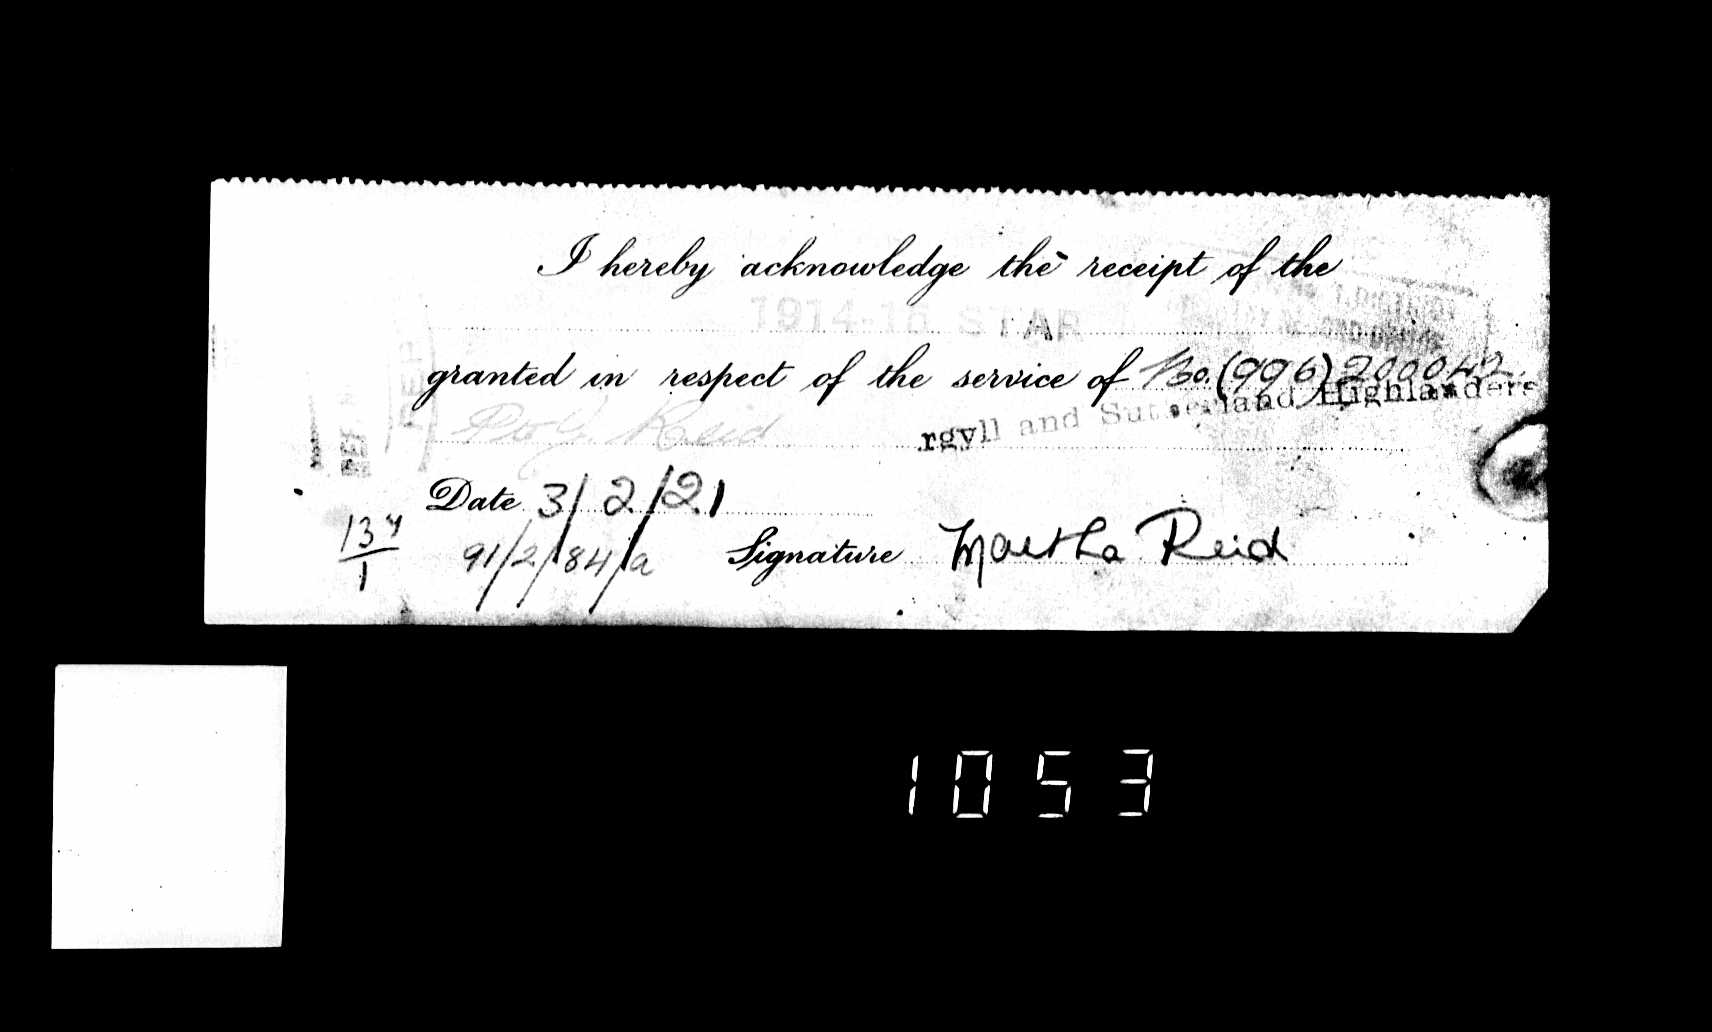 I hereby acknowledge the receipt of the
1914-15 STAR
granted in respect of the service of No. (996) 200042.
Reid rgyll and Sutherland Highlanders
Date 3/2/21
13 y
1
91/2/84/a Signature Martha Reid
1053